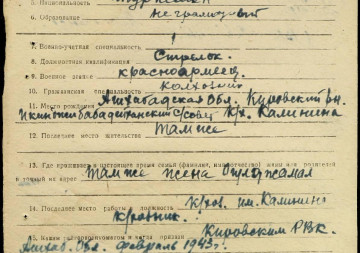 5. Национальность Туркмен
6. Образование неграмотный
7. Военно-учетная специальность
8. Должностная квалификация Стрелок.
9. Военное звание красноармеец
10. Гражданская специальность Колхозник
11. Место рождения Ашхабадская Обл. Кировский рн.
с/совет К/х. Калинина
12. Последнее место жительства Там же
13. Где проживает в настоящее время семья (фамилия, имя, отчество) жены или родителей
и точный их адрес Там же жена
14. Последнее место работы и должность К/хоз. им. Калинина
15. Каким райвоенкоматом и когда призван Кировским РВК.
Ашхаб. Обл. февраль 1943 г.